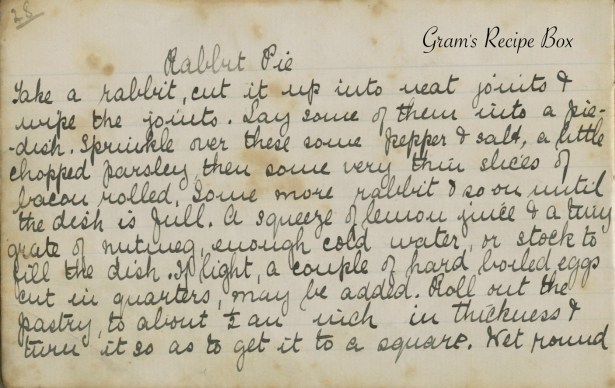 25
Gram's Recipe Box
Rabbit Pie
Take a rabbit, cut it up into neat joints &
wipe the joints. Lay some of them into a pie-
-dish. Sprinkle over these some pepper & salt, a little
chopped parsley, then some very thin slices of
bacon rolled, Some more rabbit & so on until
the dish is full. A squeeze of lemon juice & a tiny
grate of nutmeg, enough cold water, or stock to
fill the dish. If light, a couple of hard boiled eggs
cut in quarters, may be added. Roll out the
pastry, to about ½ an inch in thickness &
turn it so as to get it to a square. Wet round